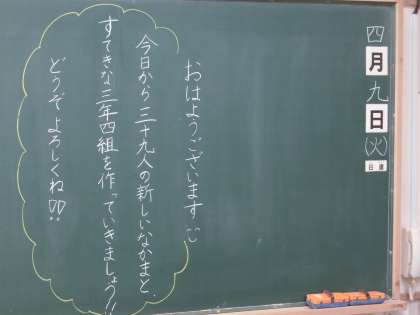 四月九日(火)
日直
おはようございます
今日から三十九人の新しいなかまと、
すてきな三年四組を作っていきましょう!!
どうぞよろしくね!!